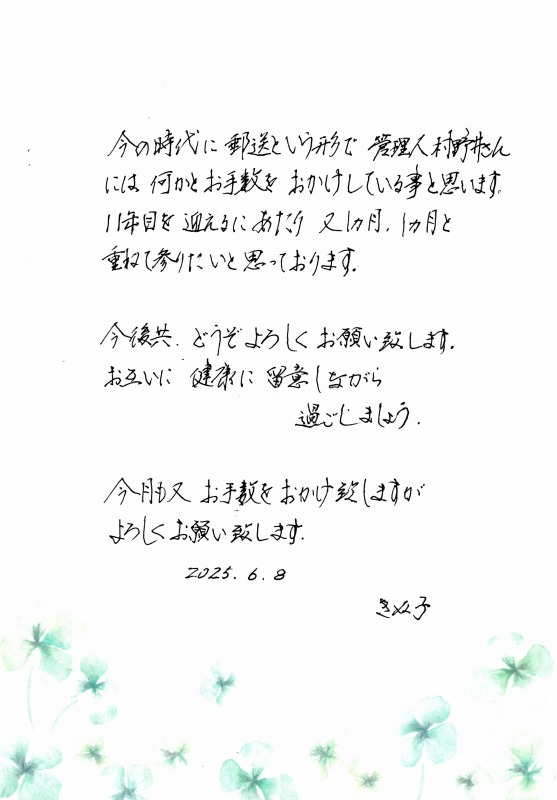 今の時代に郵送という形で 管理人村野井さん
には 何かとお手数を おかけしている事と思います。
11年目を 迎えるにあたり 又1カ月、1カ月と
重ねて参りたいと思っております。
今後共、どうぞよろしく お願い致します。
お互いに 健康に留意しながら
過ごしましょう。
今月も又 お手数をおかけ致しますが
よろしくお願い致します。
2025.6.8